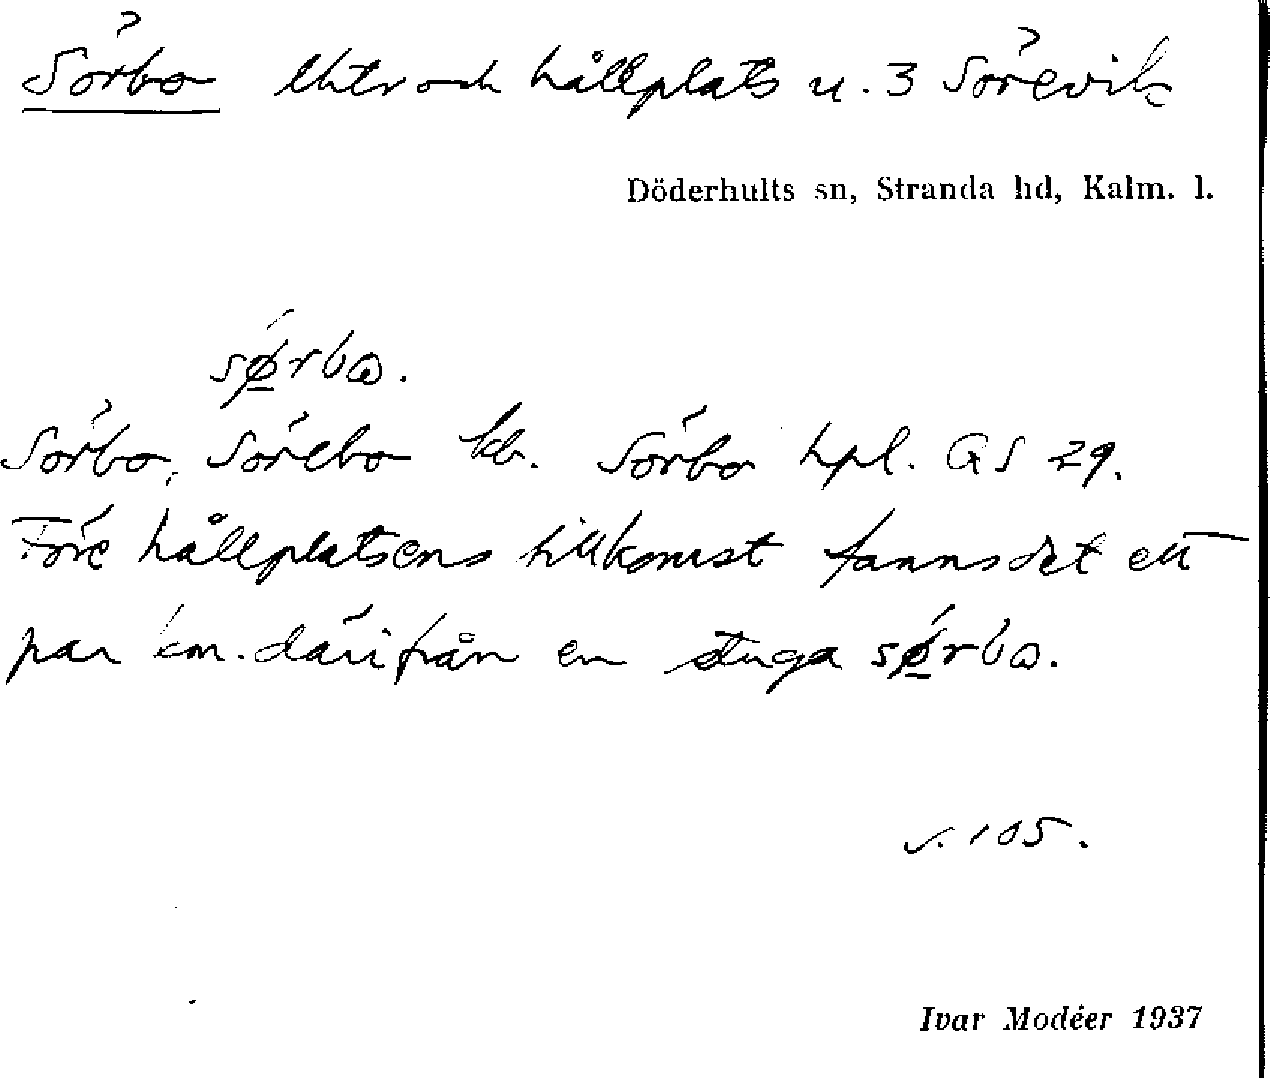 Sörbo lht och hållplats u. 3 Sörevik
Döderhults sn, Stranda hd, Kalm. l.
sørbɷ.
Sörbo, Sörebo kb. Sörbo hpl. GS 29.
Före hållplatsens tillkomst fanns det ett
par km. därifrån en stuga sørbɷ.
s. 105.
Ivar Modéer 1937